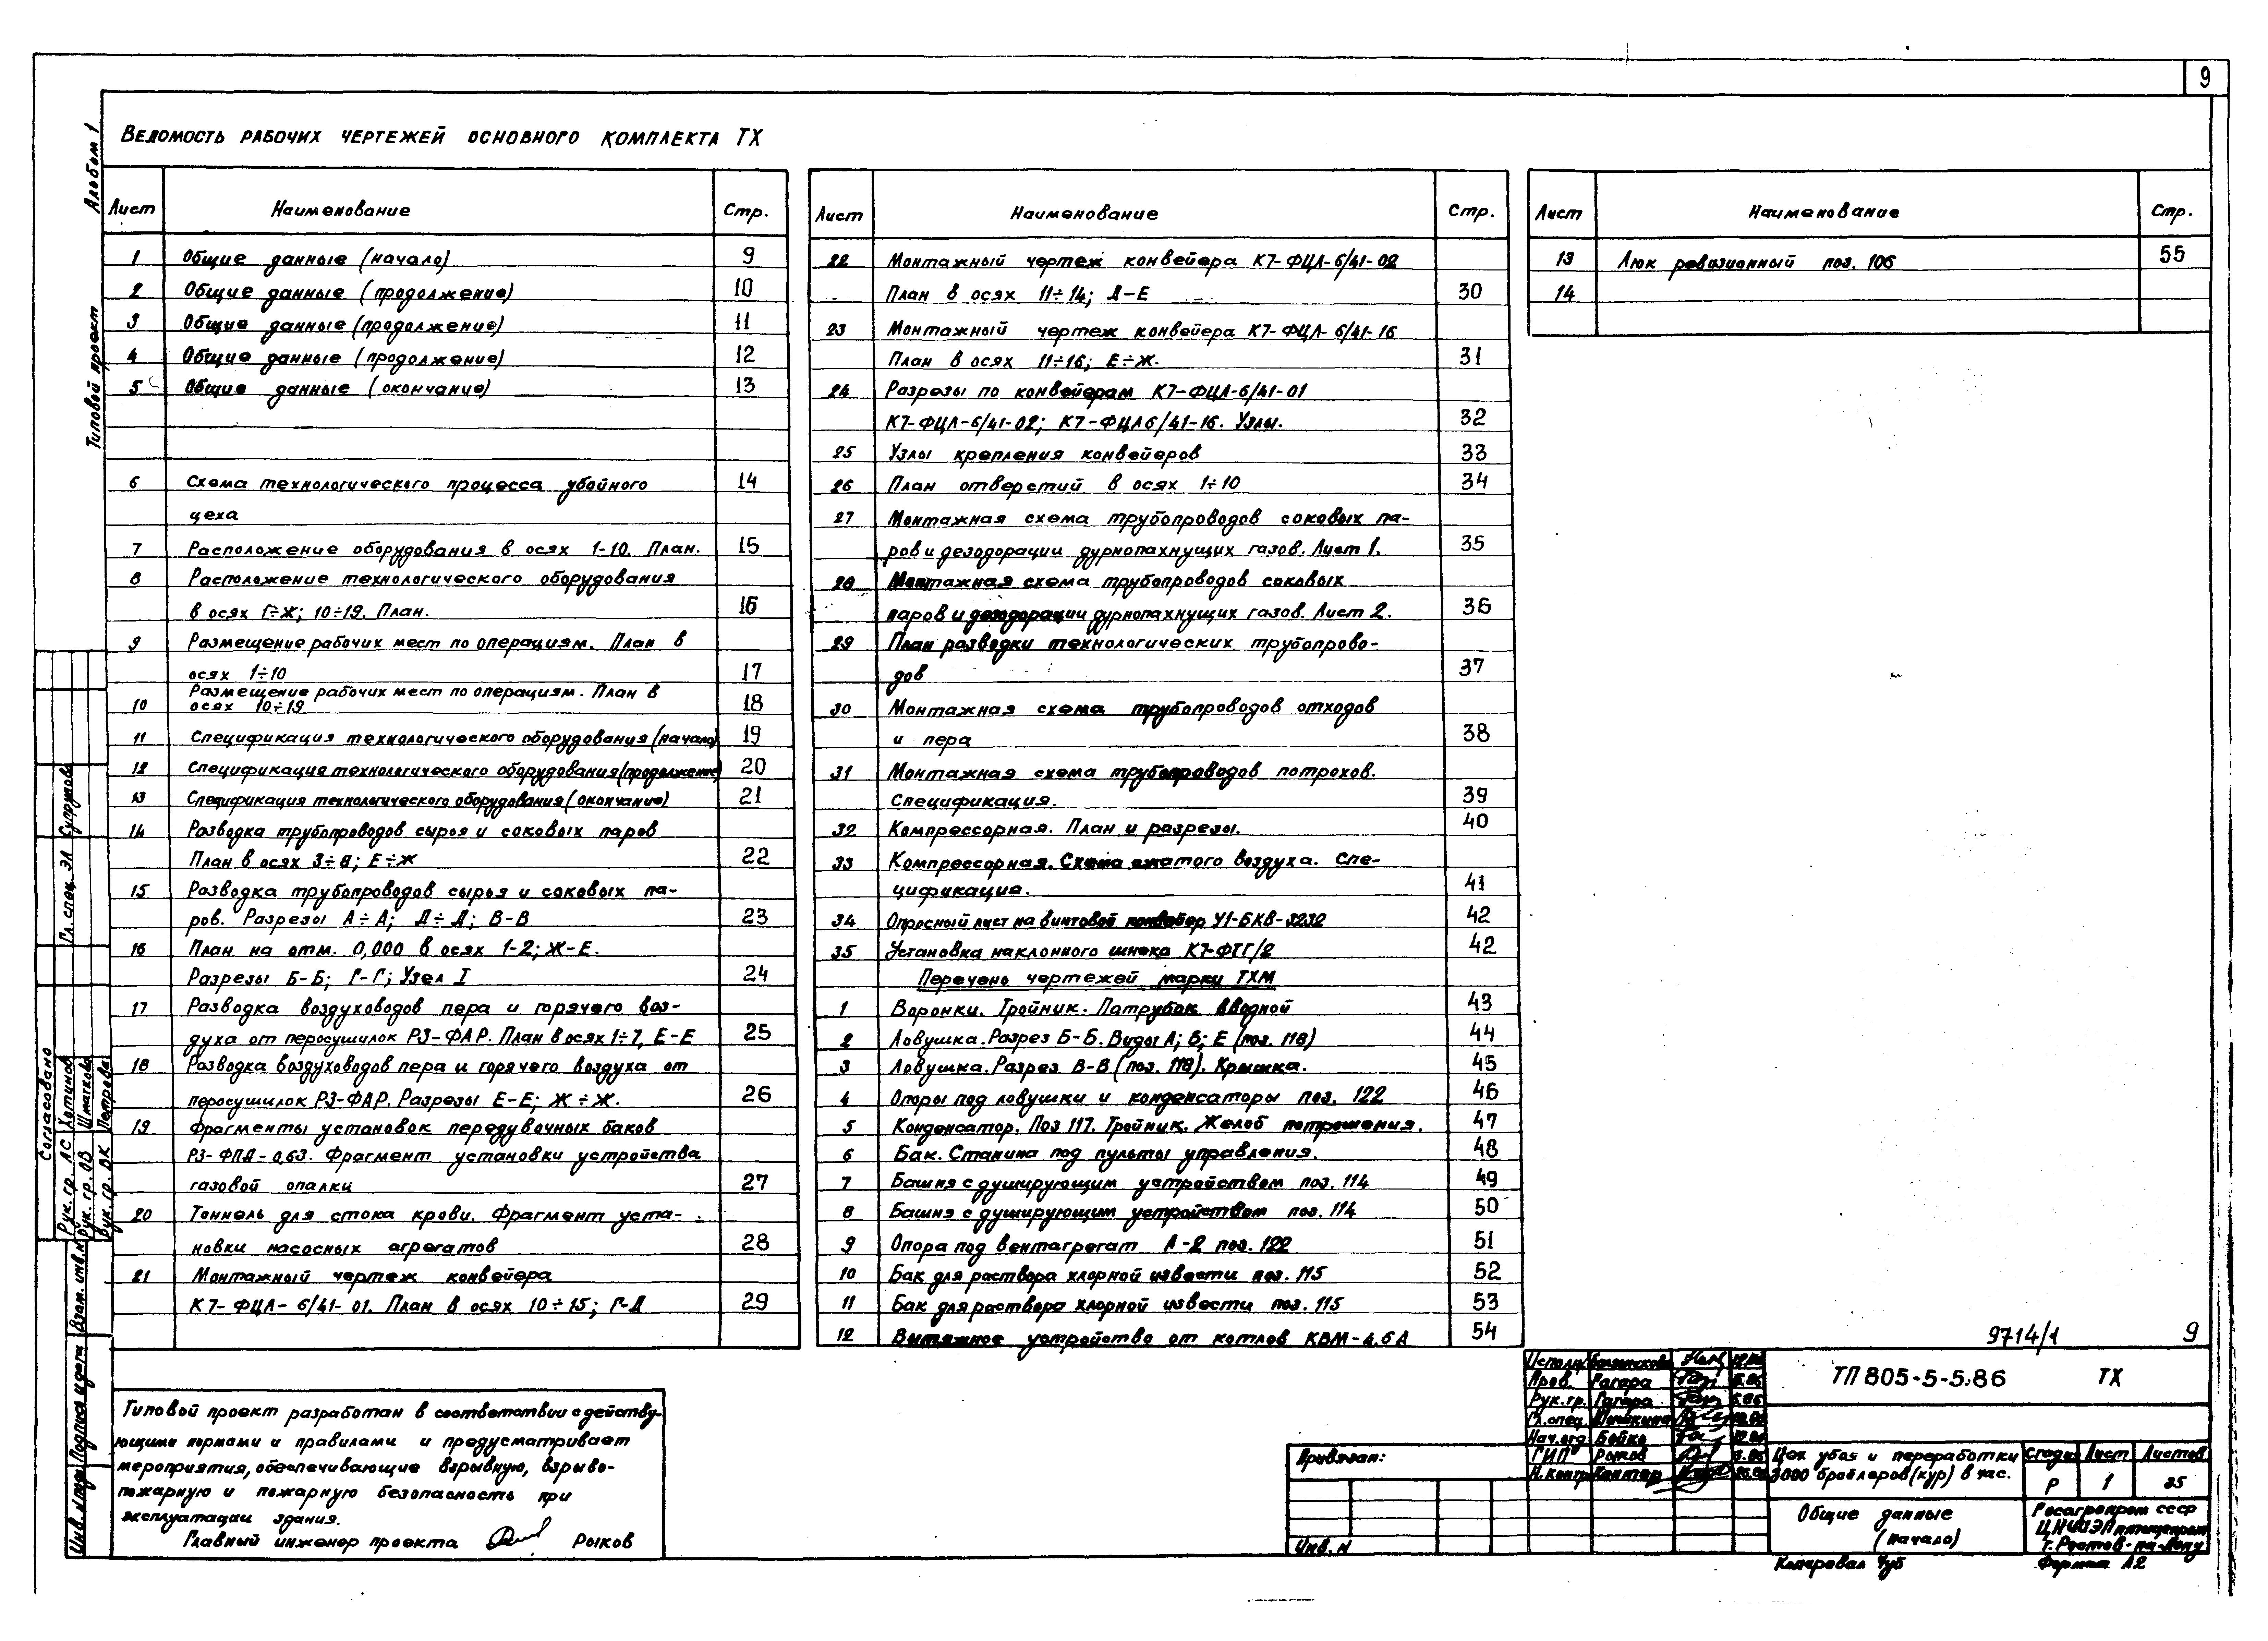 9
Альбом 1
Типовой проект
Ведомость рабочих чертежей основного комплекта ТХ
Лист Наименование Стр.
1 Общие данные (начало) 9
2 Общие данные (продолжение) 10
3 Общие данные (продолжение) 11
4 Общие данные (продолжение) 12
5 Общие данные (окончание) 13
6 Схема технологического процесса убойного 14
цеха
7 Расположение оборудования в осях 1-10. План. 15
8 Расположение технологического оборудования
в осях Г÷Ж; 10÷19. План. 16
9 Размещение рабочих мест по операциям. План в
осях 1÷10 17
Размещение рабочих мест по операциям. План в
10 осях 10÷19 18
11 Спецификация технологического оборудования (начало) 19
12 Спецификация технологического оборудования (продолжение) 20
13 Спецификация технологического оборудования (окончание) 21
14 Разводка трубопроводов сырья и соковых паров
План в осях 3÷8; Е÷Ж 22
15 Разводка трубопроводов сырья и соковых па-
ров. Разрезы А÷А; Д÷Д; В-В 23
16 План на отм. 0,000 в осях 1-2; Ж-Е.
Разрезы Б-Б; Г-Г; Узел I 24
17 Разводка воздуховодов пера и горячего воз-
духа от перосушилок РЗ-ФАР. План в осях 1÷7, Е-Е 25
18 Разводка воздуховодов пера и горячего воздуха от
перосушилок РЗ-ФАР. Разрезы Е-Е; Ж÷Ж. 26
19 Фрагменты установок передувочных баков
РЗ-ФПД-0,63. Фрагмент установки устройства
газовой опалки 27
20 Тоннель для стока крови. Фрагмент уста-
новки насосных агрегатов 28
21 Монтажный чертеж конвейера
К7-ФЦЛ-6/41-01. План в осях 10÷15; Г-Д 29
Лист Наименование Стр.
22 Монтажный чертеж конвейера К7-ФЦЛ-6/41-02
План в осях 11÷14; Д-Е 30
23 Монтажный чертеж конвейера К7-ФЦЛ-6/41-16
План в осях 11÷16; Е÷Ж. 31
24 Разрезы по конвейерам К7-ФЦЛ-6/41-01
К7-ФЦЛ-6/41-02; К7-ФЦЛ6/41-16. Узлы. 32
25 Узлы крепления конвейеров 33
26 План отверстий в осях 1÷10 34
27 Монтажная схема трубопроводов соковых па-
ров и дезодорации дурнопахнущих газов. Лист 1. 35
28 Монтажная схема трубопроводов соковых
паров и дезодорации дурнопахнущих газов. Лист 2. 36
29 План разводки технологических трубопрово-
дов 37
30 Монтажная схема трубопроводов отходов
и пера 38
31 Монтажная схема трубопроводов потрохов.
Спецификация. 39
32 Компрессорная. План и разрезы. 40
33 Компрессорная. Схема сжатого воздуха. Спе-
цификация. 41
34 Опросный лист на винтовой конвейер У1-БКВ-3232 42
35 Установка наклонного шнека К7-ФТГ/2 42
Перечень чертежей марки ТХМ
1 Воронки. Тройник. Патрубок вводной 43
2 Ловушка. Разрез Б-Б. Виды А; Б; Е (поз. 118) 44
3 Ловушка. Разрез В-В (поз. 118). Крышка. 45
4 Опоры под ловушки и конденсаторы поз. 122 46
5 Конденсатор. Поз 117. Тройник. Желоб потрошения. 47
6 Бак. Станина под пульты управления. 48
7 Башня с душирующим устройством поз. 114 49
8 Башня с душирующим устройством поз. 114 50
9 Опора под вентагрегат А-2 поз. 122 51
10 Бак для раствора хлорной извести поз. 115 52
11 Бак для раствора хлорной извести поз. 115 53
12 Вытяжное устройство от котлов КВМ-4.6А 54
Лист Наименование Стр.
13 Люк ревизионный поз. 106 55
14
Согласовано
Гл. спец. ЭЛ Супрунова
Рук. гр. АС Хотинов
Рук. гр. ОВ Шматкова
Рук. гр. ВК Петрова
Взам. инв. №
Подпись и дата
Инв. № подл.
Типовой проект разработан в соответствии с действу-
ющими нормами и правилами и предусматривает
мероприятия, обеспечивающие взрывную, взрыво-
пожарную и пожарную безопасность при
эксплуатации здания.
Главный инженер проекта Рыков
9714/1 9
Исполн.
Пров. Гагара
Рук. гр. Гагара
Гл. спец.
Нач. отд Бойко
ГИП Рыков
Н. контр Кантер
Привязан:
Инв. N
ТП 805-5-5.86 ТХ
Цех убоя и переработки
3000 бройлеров (кур) в час.
Стадия Лист Листов
Р 1 35
Общие данные
(начало)
Росагропром СССР
ЦНИИЭПптицепром
г. Ростов-на-Дону
Копировал Чуб Формат А2